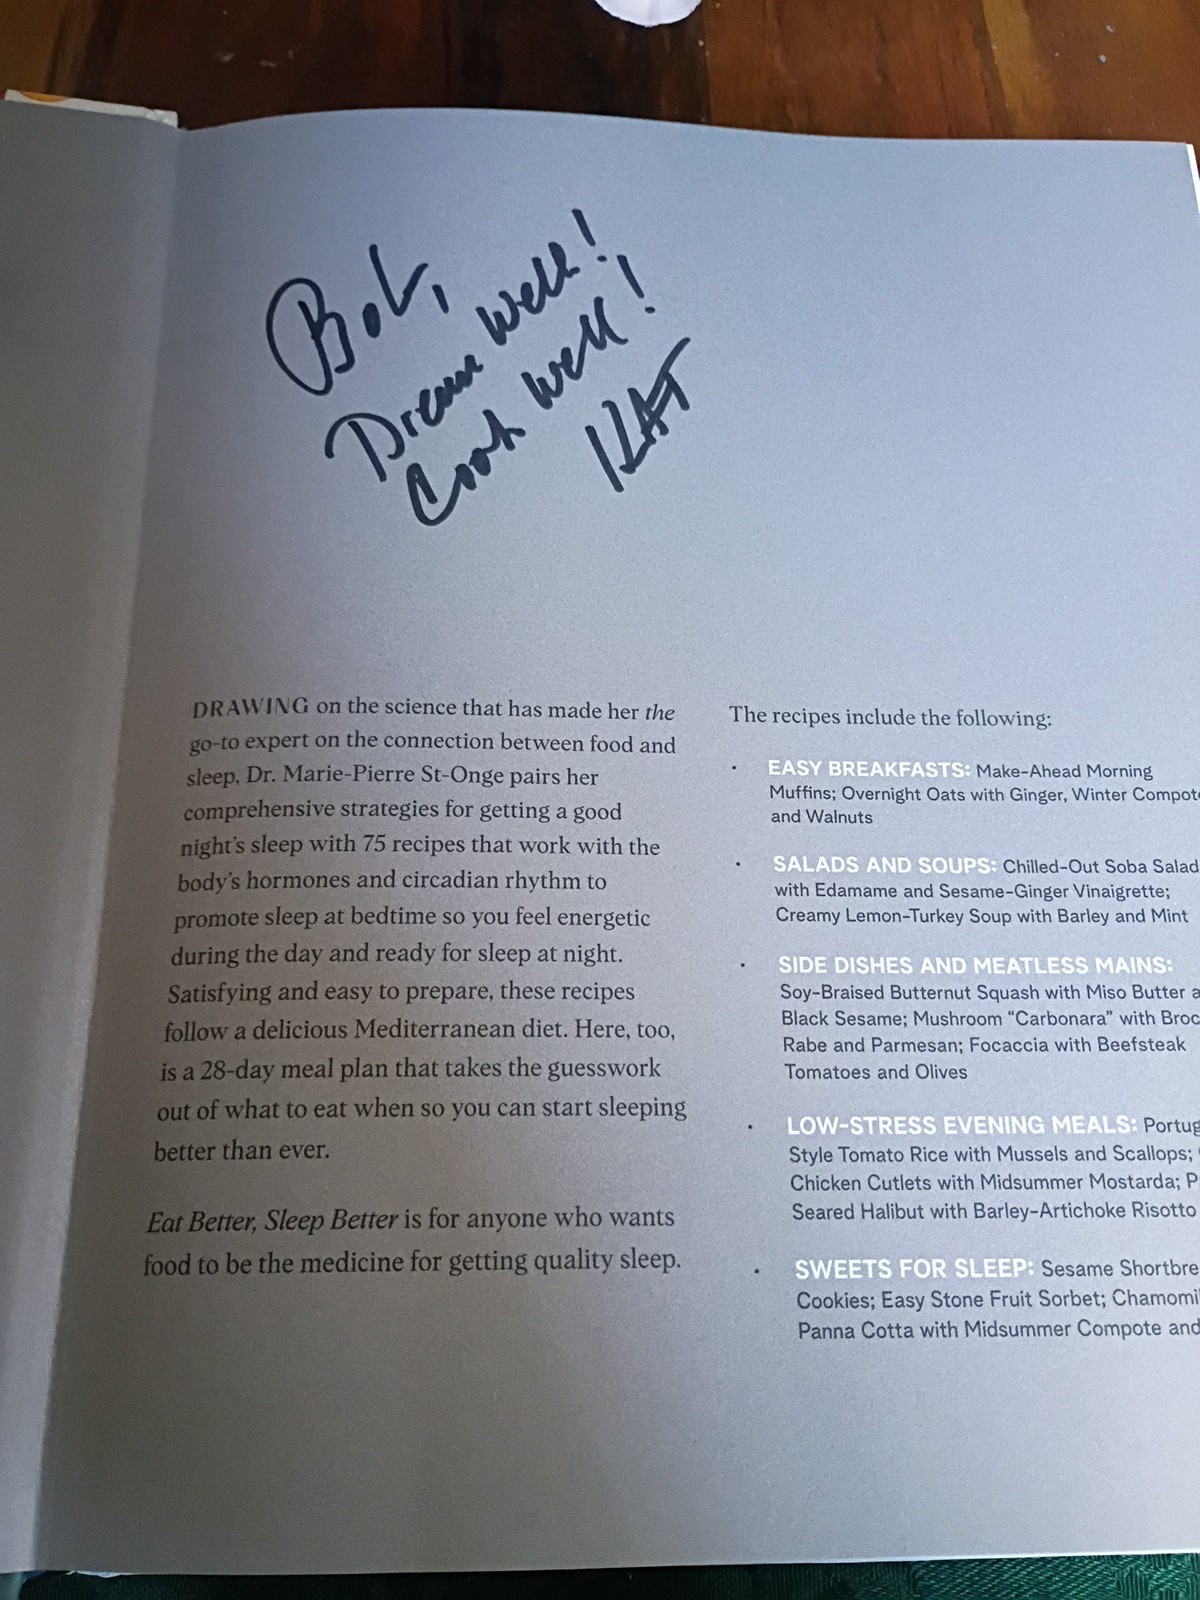 Bob,
Dream Well!
Cook Well!
KAT
DRAWING on the science that has made her the
go-to expert on the connection between food and
sleep, Dr. Marie-Pierre St-Onge pairs her
comprehensive strategies for getting a good
night's sleep with 75 recipes that work with the
body's hormones and circadian rhythm to
promote sleep at bedtime so you feel energetic
during the day and ready for sleep at night.
Satisfying and easy to prepare, these recipes
follow a delicious Mediterranean diet. Here, too,
is a 28-day meal plan that takes the guesswork
out of what to eat when so you can start sleeping
better than ever.
Eat Better, Sleep Better is for anyone who wants
food to be the medicine for getting quality sleep.
The recipes include the following:
• EASY BREAKFASTS: Make-Ahead Morning
Muffins; Overnight Oats with Ginger, Winter Compot
and Walnuts
• SALADS AND SOUPS: Chilled-Out Soba Salad
with Edamame and Sesame-Ginger Vinaigrette;
Creamy Lemon-Turkey Soup with Barley and Mint
• SIDE DISHES AND MEATLESS MAINS:
Soy-Braised Butternut Squash with Miso Butter a
Black Sesame; Mushroom “Carbonara” with Broc
Rabe and Parmesan; Focaccia with Beefsteak
Tomatoes and Olives
• LOW-STRESS EVENING MEALS: Portug
Style Tomato Rice with Mussels and Scallops;
Chicken Cutlets with Midsummer Mostarda; P
Seared Halibut with Barley-Artichoke Risotto
• SWEETS FOR SLEEP: Sesame Shortbre
Cookies; Easy Stone Fruit Sorbet; Chamomi
Panna Cotta with Midsummer Compote and